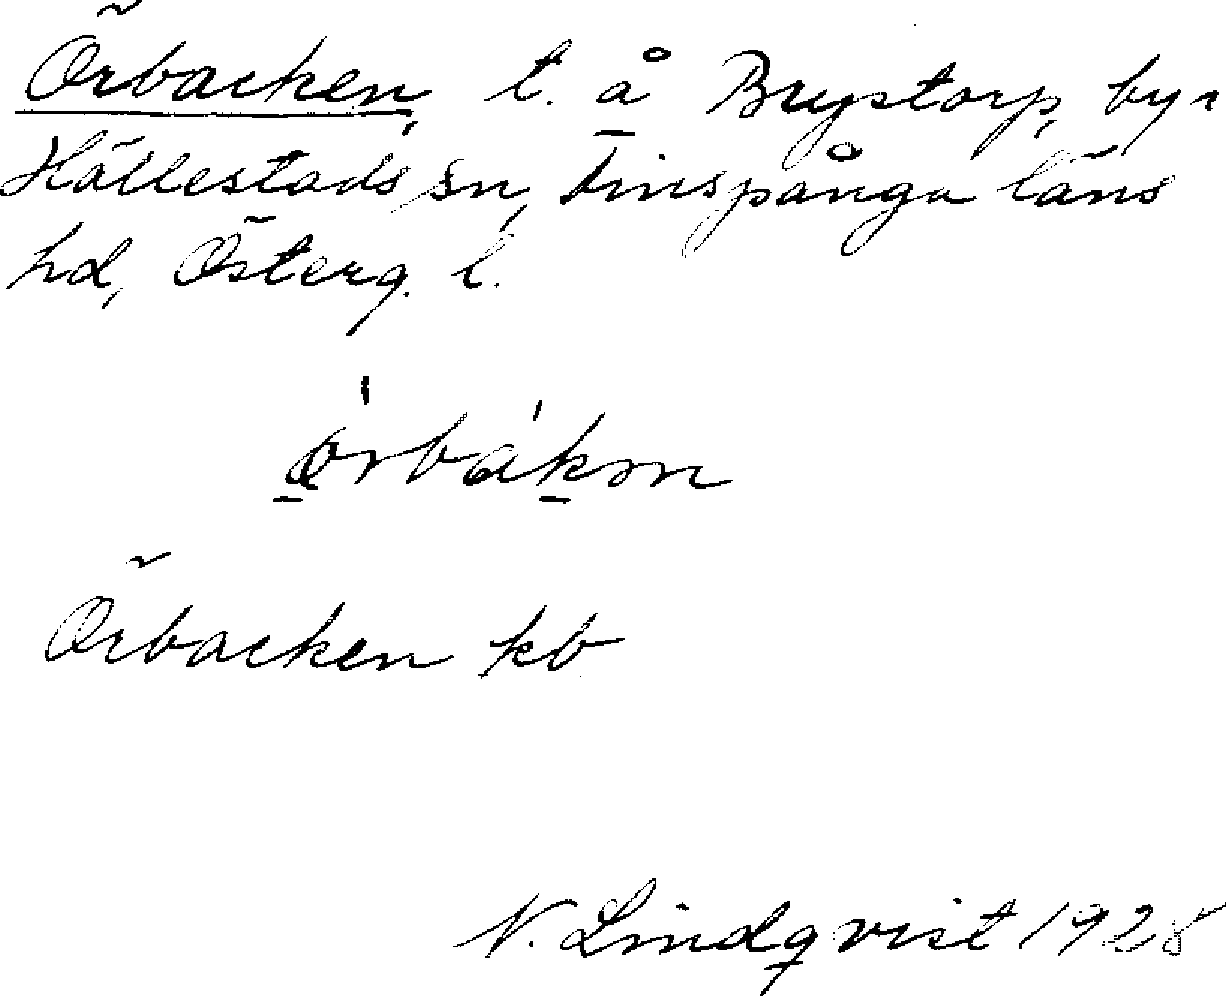 Örbacken, t. å Brystorp, by i
Hällestads sn, Finspånga läns
hd, Österg. l.
ö̀rbákən
Örbacken kb
N. Lindqvist 1928